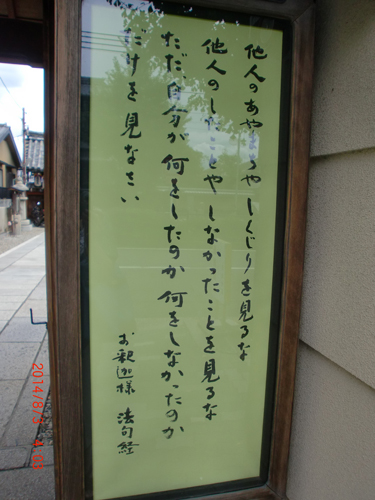 他人のあやまちや しくじりを見るな
他人のしたことや しなかったことを見るな
ただ、自分が 何をしたのか 何をしなかったのか
だけを 見なさい
お釈迦様 法句経
2014/8/3